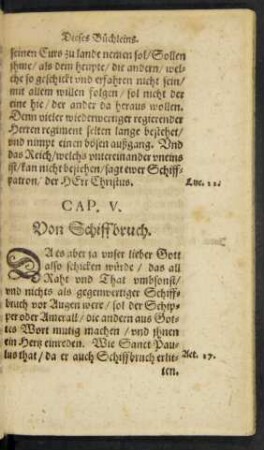 Dieses Büchleins.
seinen Curs zu lande nemen sol/ Sollen
jhme/ als dem heupte/ die andern/ wel-
che so geschickt vnd erfahren nicht sein/
mit allem willen folgen/ sol nicht der
eine hie/ der ander da heraus wollen.
Denn vieler wiederweniger regierender
Herren regiment selten lange bestehet/
vnd nimpt einen bösen außgang. Vnd
das Reich/ welchs vntereinander vneins
ist/ kan nicht bestehen/ sagt ewer Schiff-
patron/ der HErr Christus.
Luc. 11.
CAP. V.
Von Schiffbruch.
DA es aber ja vnser lieber Gott
also schicken würde/ das all
Raht vnd That vmbsonst/
vnd nichts als gegenwertiger Schiff-
bruch vor Augen were/ sol der Schip-
per oder Amerall/ die andern aus Got-
tes Wort mutig machen/ vnd jhnen
ein Hertz einreden. Wie Sanct Pau-
lus that/ da er auch Schiffbruch erlit-
Act. 27.
ten.